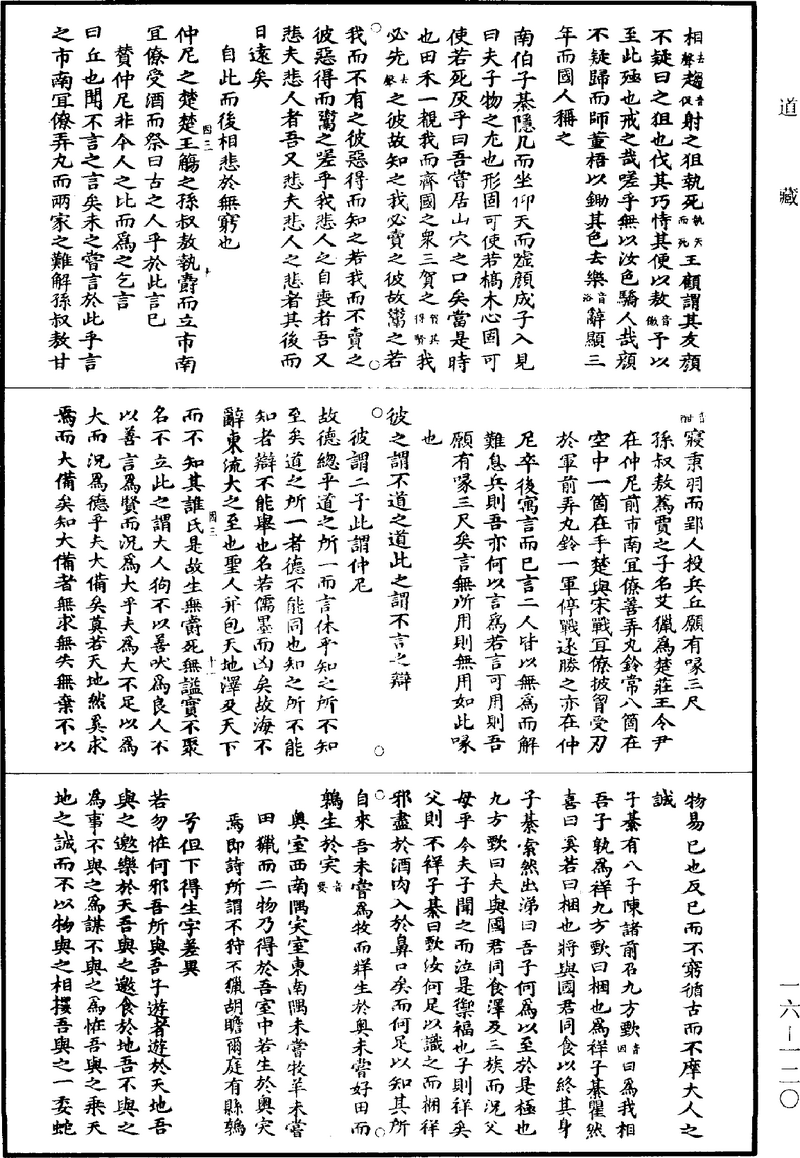 道藏
一六—一二〇
相去聲趨音促射之狙執死執而死王顧謂其友顏
不疑曰之狙也伐其巧恃其便以敖音傲予以
至此殛也戒之哉嗟乎無以汝色驕人哉顏
不疑歸而師董梧以鋤其色去樂音洛辭顯三
年而國人稱之
南伯子綦隱几而坐仰天而噓顏成子入見
曰夫子物之尤也形固可使若槁木心固可
使若死灰乎曰吾嘗居山穴之口矣當是時
也田禾一覩我而齊國之衆三賀之賀其得賢我
必先去聲之彼故知之我必賣之彼故鬻之若
我而不有之彼惡得而知之若我而不賣之
彼惡得而鬻之嗟乎我悲人之自喪者吾又
悲夫悲人者吾又悲夫悲人之悲者其後而
日遠矣
自此而後相悲於無窮也
仲尼之楚楚王觴之孫叔敖執爵而立市南
宜僚受酒而祭曰古之人乎於此言已
贊仲尼非今人之比而爲之乞言
曰丘也聞不言之言矣未之嘗言於此乎言
之市南宜僚弄丸而兩家之難解孫叔敖甘
音酣寢秉羽而郢人投兵丘願有喙三尺
孫叔敖蒍賈之子名艾獵爲楚莊王令尹
在仲尼前市南宜僚善弄丸鈴常八箇在
空中一箇在手楚與宋戰宜僚披胷受刃
於軍前弄丸鈴一軍停戰遂勝之亦在仲
尼卒後寓言而已言二人皆以無爲而解
難息兵則吾亦何以言爲若言可用則吾
願有喙三尺矣言無所用則無用如此喙
也
彼之謂不道之道此之謂不言之辯
彼謂二子此謂仲尼
故德總乎道之所一而言休乎知之所不知
至矣道之所一者德不能同也知之所不能
知者辯不能舉也名若儒墨而凶矣故海不
辭東流大之至也聖人并包天地澤及天下
而不知其誰氏是故生無爵死無謚實不聚
名不立此之謂大人狗不以善吠爲良人不
以善言爲賢而況爲大乎夫爲大不足以爲
大而況爲德乎夫大備矣莫若天地然奚求
焉而大備矣知大備者無求無失無棄不以
物易已也反已而不窮循古而不摩大人之
誠
子綦有八子陳諸前召九方歅音因曰爲我相
吾子孰爲祥九方歅曰梱也爲祥子綦瞿然
喜曰奚若曰梱也將與國君同食以終其身
子綦索然出涕曰吾子何爲以至於是極也
九方歅曰夫與國君同食澤及三族而況父
母乎今夫子聞之而泣是禦福也子則祥矣
父則不祥子綦曰歅汝何足以識之而梱祥
邪盡於酒肉入於鼻口矣而何足以知其所
自來吾未嘗爲牧而牂生於奧未嘗好田而
鶉生於宎音要
奧室西南隅宎室東南隅未嘗牧羊未嘗
田獵而二物乃得於吾室中若生於奧宎
焉即詩所謂不狩不獵胡瞻爾庭有縣鶉
兮但下得生字差異
若勿怪何邪吾所與吾子遊者遊於天地吾
與之邀樂於天吾與之邀食於地吾不與之
爲事不與之爲謀不與之爲怪吾與之乘天
地之誠而不以物與之相攖吾與之一委蛇